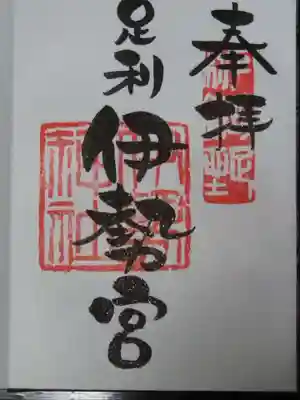 奉拝
足利
伊勢宮